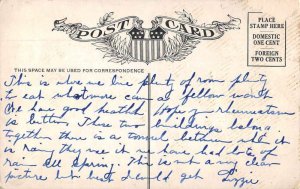 POST CARD
PLACE
STAMP HERE
DOMESTIC
ONE CENT
FOREIGN
TWO CENTS
THIS SPACE MAY BE USED FOR CORRESPONDENCE
This is a live place plenty of room plenty
to eat what more can a fellow want
We have good health Hope rheumatism
is better. These two buildings belong
together there is a tunnel between when it
is rainy they use it we have had lots of
rain all Spring. This is not a very clear
picture but best I could get Lizzie